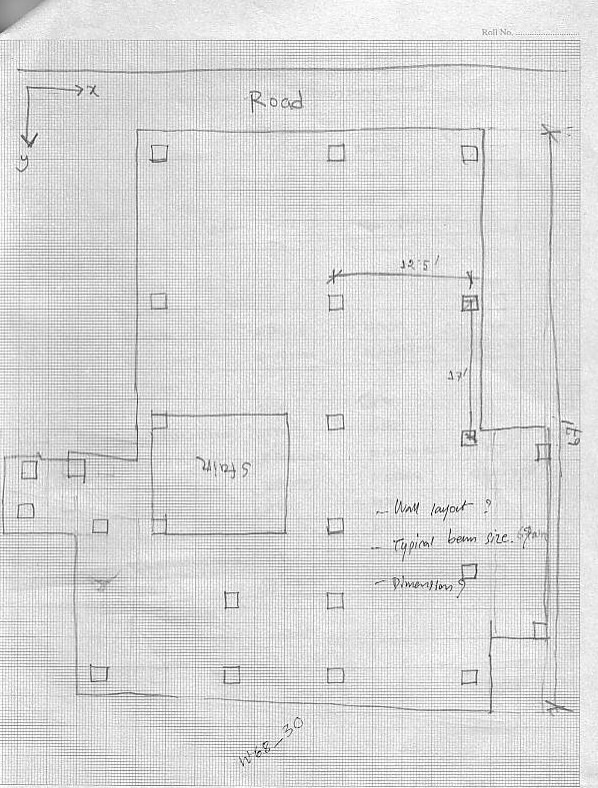 Roll No.
x
Road
y
12.5'
17'
67'
Stair
- Wall layout ?
- Typical beam size.
- Dimension ?
W68_30